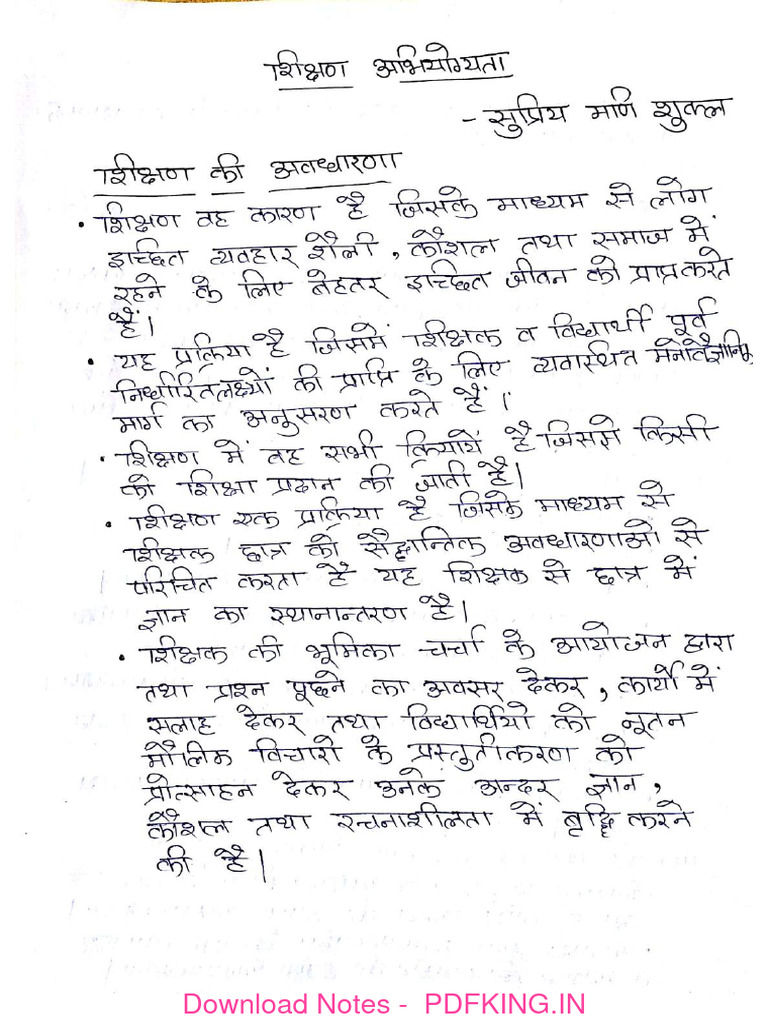 शिक्षण अभियोग्यता
- सुप्रिय मणि शुक्ल
शिक्षण की अवधारणा
• शिक्षण वह कारण है जिसके माध्यम से लोग
इच्छित व्यवहार शैली, कौशल तथा समाज में
रहने के लिए बेहतर इच्छित जीवन को प्राप्त करते
हैं।
• यह प्रक्रिया है जिसमें शिक्षक व विद्यार्थी पूर्व
निर्धारित लक्ष्यों की प्राप्ति के लिए व्यवस्थित मनोवैज्ञानिक
मार्ग का अनुसरण करते हैं।
• शिक्षण में वह सभी क्रियायें है जिसमे किसी
को शिक्षा प्रदान की जाती है।
• शिक्षण एक प्रक्रिया है जिसके माध्यम से
शिक्षक छात्र को सैद्धान्तिक अवधारणाओं से
परिचित करता है यह शिक्षक से छात्र में
ज्ञान का स्थानान्तरण है।
• शिक्षक की भूमिका चर्चा के आयोजन द्वारा
तथा प्रश्न पूछने का अवसर देकर, कार्यों में
सलाह देकर तथा विद्यार्थियो को नूतन
मौलिक विचारो के प्रस्तुतीकरण को
प्रोत्साहन देकर उनके अन्दर ज्ञान,
कौशल तथा रचनाशीलता में बृद्धि करने
की है।
Download Notes - PDFKING.IN